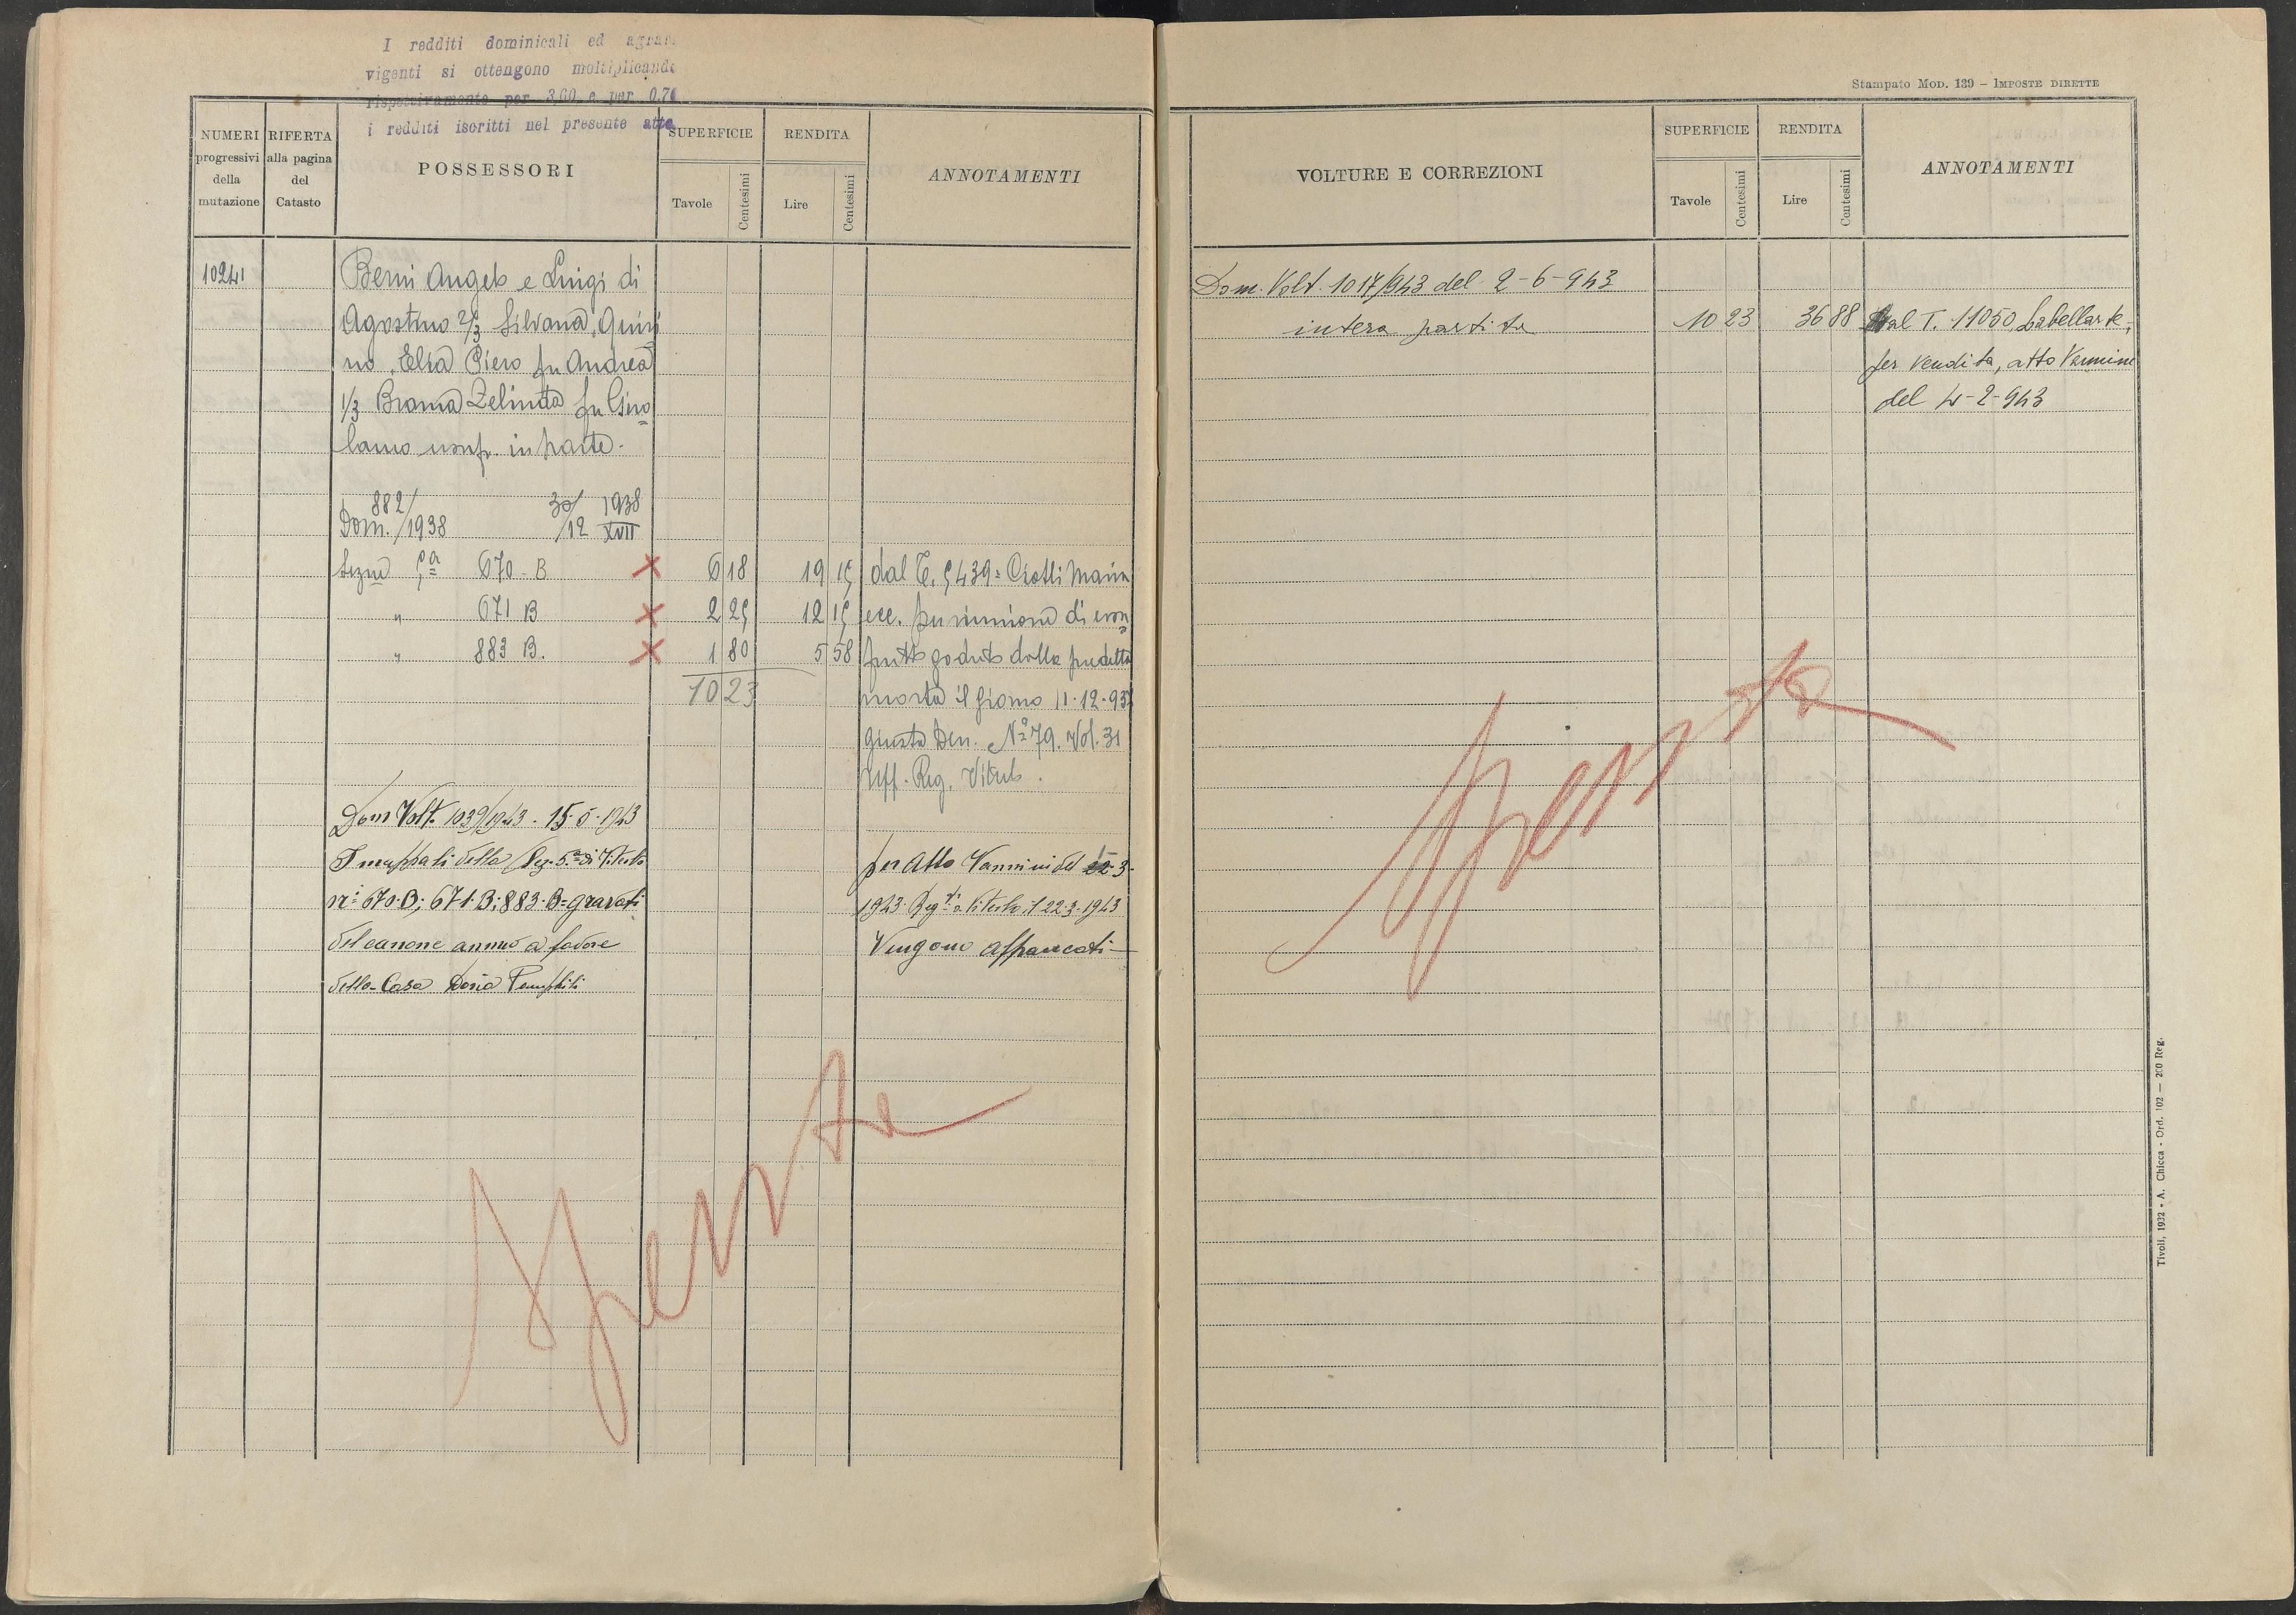 I redditi dominicali ed agrar.
vigenti si ottengono moltiplicando
rispettivamente per 3,60 e per 0,70
i redditi iscritti nel presente atto
NUMERI progressivi della mutazione
RIFERTA alla pagina del Catasto
POSSESSORI
SUPERFICIE
Tavole
Centesimi
RENDITA
Lire
Centesimi
ANNOTAMENTI
10241
Berni Angelo e Luigi di
Agostino 2/3 Silvana, Quiri
no, Elsa Piero fu Andrea
1/3 Zelinda fu Giro
lamo usufr. in parte.
Dom. 882/1938 30/12 1938 XVII
Sezne 5ª 670 - B 6 18 19 15 dal T. 5439 =
" 671 B 2 25 12 15 ecc. per riunione di usu
" 883 B. 1 80 5 58 frutto goduto dalla predetta
10 23 morta il giorno 11-12-937
giusta Den. Nº 79. Vol. 31
Uff. Reg. Viterb.
Dom Volt. 1039/1943 - 15-5-1943
I mappali della Sez. 5ª di Viterbo per Atto Vannini del 3-
ni 670-B; 671-B; 883-B = gravati 1943 Regto a Viterbo il 22-3-1943
del canone annuo a favore Vengono affrancati
della Casa Doria Pamphili
Spenta
Stampato MOD. 139 – IMPOSTE DIRETTE
VOLTURE E CORREZIONI
SUPERFICIE
Tavole
Centesimi
RENDITA
Lire
Centesimi
ANNOTAMENTI
Dom. Volt. 1017/943 del 2-6-943
intera partita 10 23 36 88 al T. 11050 Labellarte,
per vendita, atto Vannini
del 4-2-943
Spenta
Tivoli, 1932 - A. Chicca - Ord. 102 — 200 Reg.